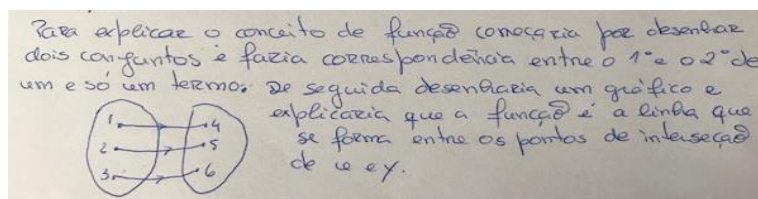 Para explicar o conceito de função começaria por desenhar
dois conjuntos e faria correspondência entre o 1º e o 2º de
um e só um termo. De seguida desenharia um gráfico e
explicaria que a função é a linha que
se forma entre os pontos de interseção
de x e y.
1 4
2 5
3 6